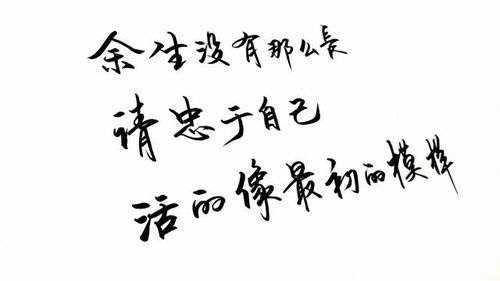 余生没有那么長
请忠于自己
活的像最初的模样